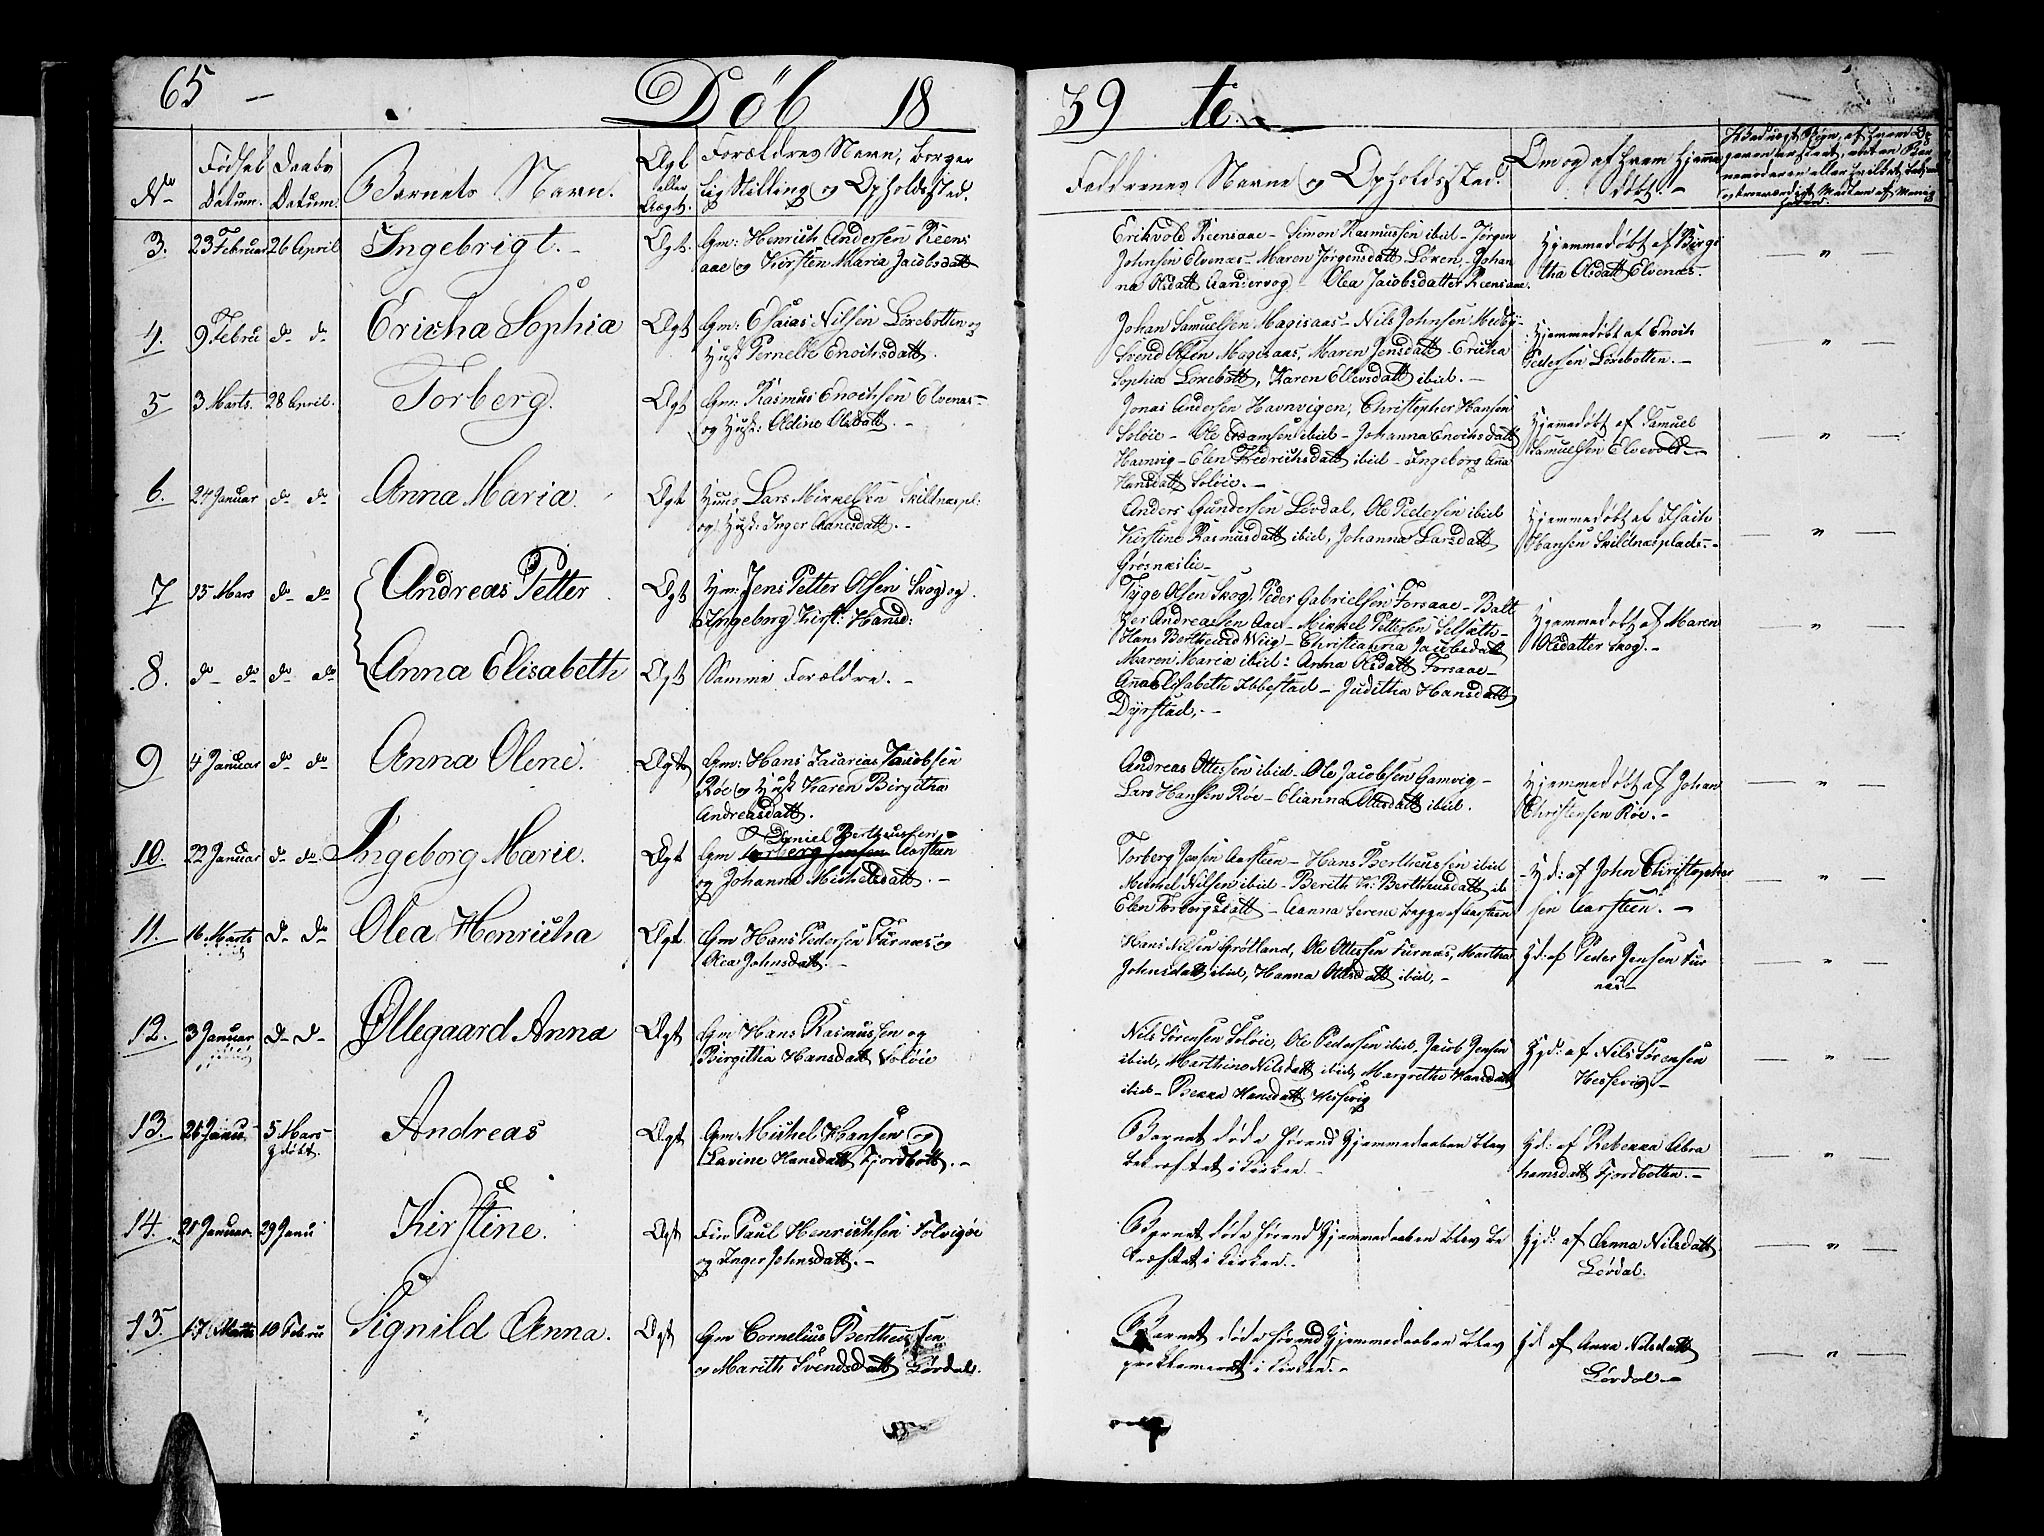 65 Döb 18 39 te
No
Födsels Datum.
Daabs Datum.
Barnets Navn.
Ægt eller Uægt.
Forældres Navn, borger
lig Stilling og Opholdssted.
Faddrenes Navne og Opholdssted.
Om og af hvem Hjemme
döbt.
3. 23 Februar 26 April Ingebrigt. Ægt. Gm: Henrich Andersen Reens
aae og Kirsten Maria Jacobsdatt
Erikvold Reensaae - Simon Rasmussen ibid - Jörgen
Johnsen Elvenæs - Maren Jörgensdatt Lören - Johan
na Olsdatt Aandervog Olea Jacobsdatter Reensaae.
Hjemmedöbt af Birgi
tha Olsdatt Elvenæs.
4. 9 Febru do do Ericha Sophia Ægt Gm: Esaias Nilsen Lörebotten og
Hust Pernelle Enochsdatt.
Johan Samuelsen Magisaas - Nils Johnsen Medby -
Svend Olsen Magisaas, Maren Jensdatt - Ericha
Sophia Lörebott, Karen Ellevsdatt ibid. -
Hjemmedöbt af Enoch
Pedersen Lörebotten. -
5 3 Marts. 28 April. Torberg. Ægt Gm. Rasmus Enochsen Elvenæs -
og Hust: Aldine Olsdatt. -
Jonas Andersen Havnvigen, Christopher Hansen
Solöie - Ole Adamsen ibid - Johanna Enochsdatt
Havnvig - Elen Fredrichsdatt ibid - Ingeborg Ana
Hansdatt Solöie. -
Hjemmedöbt af Samuel
Samuelsen Elvevold -
6. 24 Januar do do Anna Maria. Ægt Huus Lars Mikkelsen Skildnæspl:
og Hust: Inger Aanesdatt. -
Anders Gundersen Lövdal, Ole Pedersen ibid
Kirstine Rasmusdatt ibid, Johanna Larsdatt
Grösnæslie -
Hjemmedöbt af Isach
Hansen Skildnæsplads -
7 15 Mars do do Andreas Petter Ægt Hm: Jens Petter Olsen Skog og
Ingeborg Kirst: Hansd:
Tyge Olsen Skog, Peder Gabrielsen Forsaae - Balt
zer Andreassen Aae - Mikkel Pettersen Selsæth -
Hans Bertheusd Wiig - Christianna Jacobsdatt
Maren Maria ibid: Anna Olsdatt Forsaae -
Ana Elisabeth Ibbestad - Juditha Hansdatt
Dyrstad. -
Hjemmedöbt af Maren
Olsdatter Skog. -
8. do do do do Anna Elisabeth Ægt Samme Forældre. -
9 4 Januar do do Anna Olene. Ægt Gm: Hans Zacarias Jacobsen
Röe og Hust Karen Birgitha
Andreasdatt.
Andreas Ottesen ibid - Ole Jacobsen Gamvig -
Lars Hansen Röe - Elianna Ottesdatt ibid.
Hjemmedöbt af Johan
Christensen Röe. -
10. 22 Januar do do Ingeborg Marie. Ægt Daniel Bertheussen
Gm Torberg Jensen Aarsteen
og Johanna Michelsdatt. -
Torberg Jensen Aarsteen - Hans Bertheussen ibid
Michel Nilsen ibid - Berith K: Bertheusdatt ib
Elen Torborgsdatt - Aanna Serene begge af Aarsteen
Hd: af John Christopher
sen Aarsteen. -
11. 16 Marts do do Olea Henricha Ægt. Gm Hans Pedersen Furnæs og
Olea Johnsdatt. -
Hans Nilsen Grötland, Ole Ottesen Furnæs, Martha
Johnsdatt ibid, Hanna Ottesdatt ibid. -
Hd: af Peder Jensen Fur
næs -
12. 3 Januar do do Øllegaard Anna Ægt Gm Hans Rasmussen og
Birgitha Hansdatt Solöie
Nils Sörensen Solöie, Ole Pedersen ibid, Jacob Jensen
ibid, Marthina Nilsdatt ibid, Margrethe Hansdatt
ibid - Bekka Hansdatt Hessevig
Hjd: af Nils Sörensen
Hessevig -
13. 26 Janu. 5 Mars
döbt.
Andreas Ægt Gm Michel Hansen og
Lavine Hansdatt Fjordbott. -
Barnet döde förend Hjemmedaaben blev
bekræftet i Kirken -
Hd: af Rebekka Abra
hamsdatt Fjordbotten. -
14. 21 Januar. 29 Janu Kirstine. Ægt Fin Paul Henrichsen Solvigöe
og Inger Johnsdatt. -
Barnet döde förend Hjemmedaaben blev be
kræftet i Kirken. -
Hjd: af Anna Nilsdatt
Lövdal.
15. 17 Marts 10 Febru Signild Anna. Ægt Gm Cornelius Bertheussen
og Marith Svendsdatt Lövdal.
Barnet döde förend Hjemmedaaben blev
proklameret i Kirken. -
Hd af Anna Nilsdatt
Lövdal -